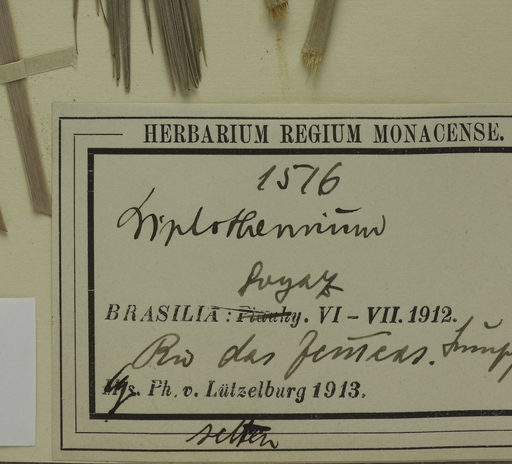 HERBARIUM REGIUM MONACENSE.
1516
Diplothemium
Goyaz
BRASILIA: Piauhy. VI – VII. 1912.
Rio das
Ph. v. Lützelburg 1913.
selten